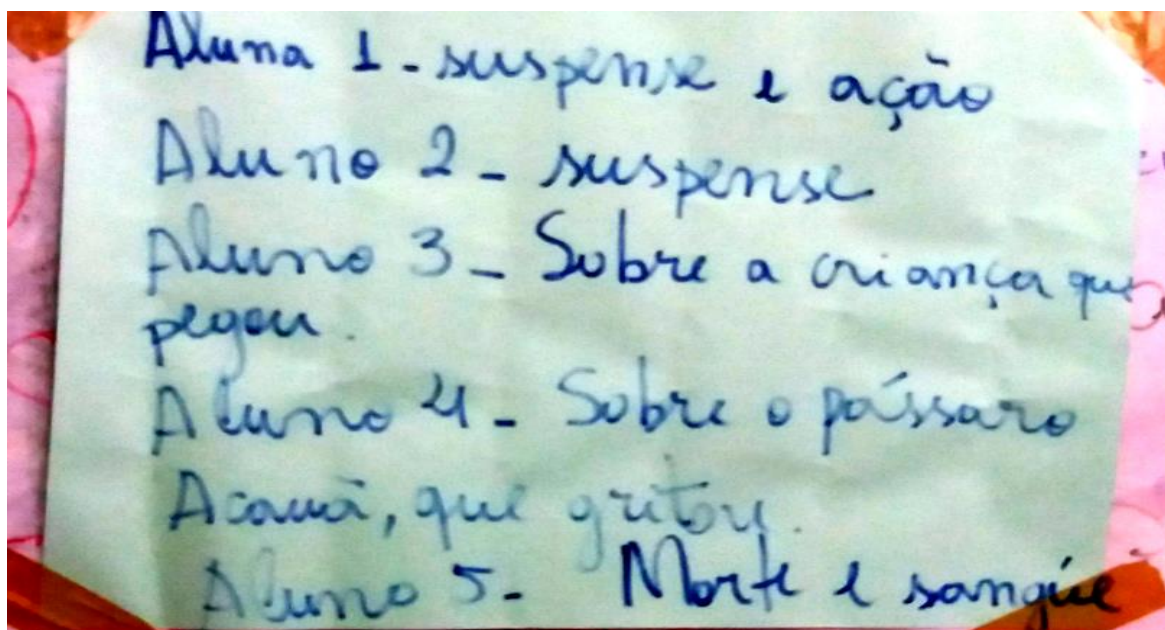 Aluna 1 - suspense e ação
Aluno 2 - suspense
Aluno 3 - Sobre a criança que
pegou.
Aluno 4 - Sobre o pássaro
Acauã, que gritou.
Aluno 5 - Morte e sangüe